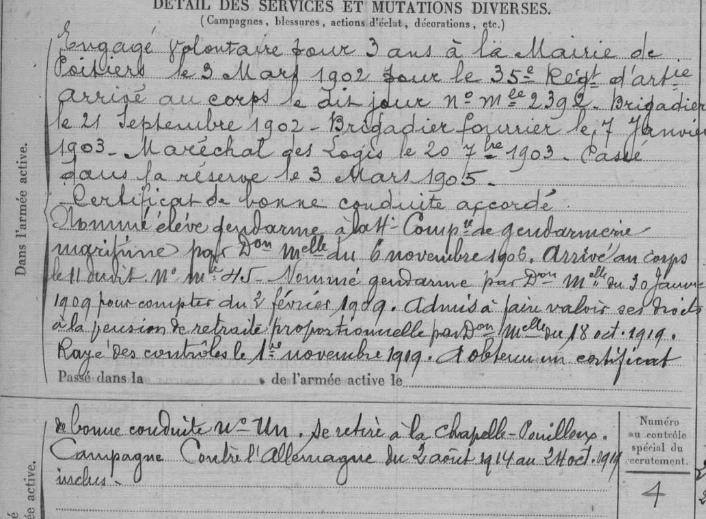 DÉTAIL DES SERVICES ET MUTATIONS DIVERSES.
(Campagnes, blessures, actions d'éclat, décorations, etc.)
Engagé Volontaire pour 3 ans à la Mairie de
Poitiers le 3 Mars 1902 pour le 35e Régt d'artie
arrivé au corps le dit jour no mle 2392. Brigadier
le 21 Septembre 1902 - Brigadier fourrier le 7 Janvier
1903 - Maréchal des Logis le 20 7bre 1903. Passé
dans la réserve le 3 Mars 1905 -
Certificat de bonne conduite accordé
Nommé élève gendarme à la Compie de gendarmerie
maritime par Don Melle du 6 novembre 1906. Arrivé au corps
le 11 dudit. No Mle 45 - Nommé gendarme par Don Melle du 20 Janvier
1909 pour compter du 2 février 1909. Admis à faire valoir ses droits
à la pension de retraite proportionnelle par Don Melle du 18 oct. 1919.
Rayé des contrôles le 1er novembre 1919. A obtenu un certificat
Passé dans la de l'armée active le
de bonne conduite No Un. Se retire à la Chapelle-Pouilloux.
Campagne Contre l'Allemagne du 2 août 1914 au 24 oct. 1919
inclus -
Dans l'armée active.
Numéro
au contrôle
spécial du
recrutement.
4